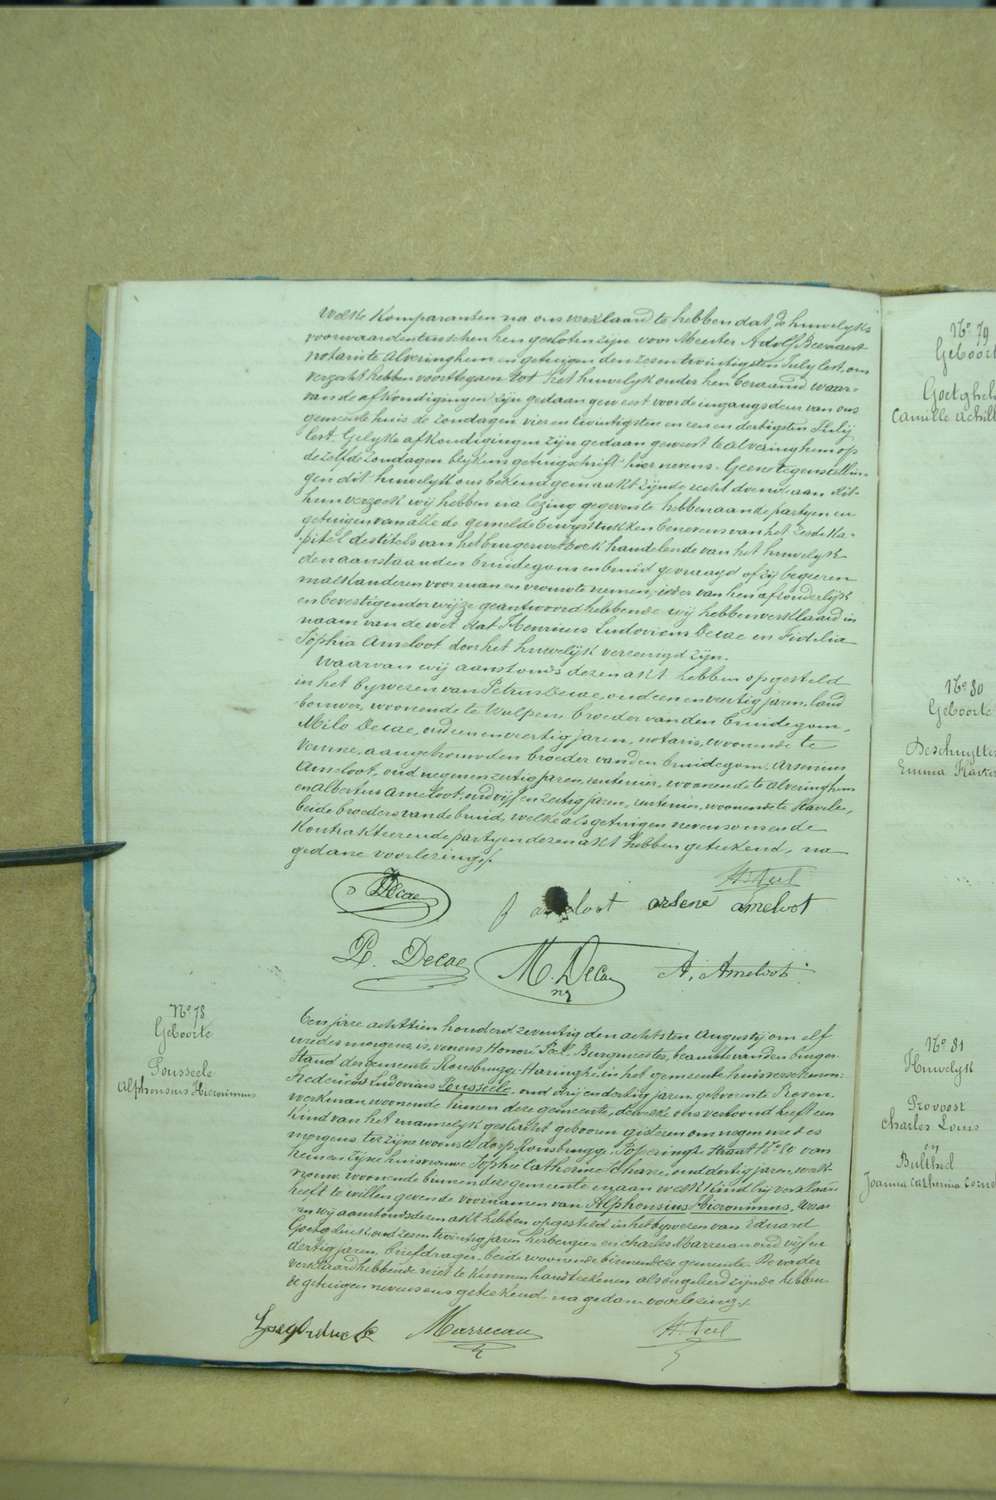 Welke Komparanten na ons verklaard te hebben dat er huwelijks
voorwaarden tusschen hen gesloten zyn voor Meester Adolf Beevaert
notaris te Alveringhem en getuigen den zesentwintigsten July lest, ons
verzocht hebben voorttegaen tot het huwelijk onder hen beraamd waar-
van de afkondigingen zijn gedaan geweest voor de ingangsdeur van ons
gemeente huis de zondagen vier en twintigsten en een en dertigsten July
lest. Gelyke afkondigingen zijn gedaan geweest te Alveringhem op
dezelfde zondagen blykens getuigschrift hier nevens. Geene tegenstellin-
gen dit huwelyk ons bekend gemaakt zijnde recht doende aan dit
hun verzoek wij hebben na lezing gegeven te hebben aan de partyen en
getuigen van alle de gemelde bewijsstukken benevens van het zesde Ka-
pitel des titels van het burgerwetboek handelende van het huwelyk
den aanstaanden bruidegom en bruid gevraagd of zij begeeren
malkanderen voor man en vrouw te nemen; ieder van hen afzonderlijk
en bevestigender wijze geantwoord hebbende wij hebben verklaard in
naam van de wet dat Henricus Ludovicus Decae en Fidelia
Sophia Ameloot door het huwelijk vereenigd zijn.
Waarvan wij aanstonds dezen akt hebben opgesteld
in het bijwezen van Petrus Decae, oud een en veertig jaren, land
bouwer, woonende te Wulpen broeder van den bruidegom,
Milo Decae, oud een en veertig jaren, notaris, woonende te
Veurne, aangetrouwden broeder van den bruidegom, Arsenius
Ameloot, oud negen en zestig jaren, rentenier, woonende te Alveringhem
en Albertus Ameloot, oud vijf en zestig jaren, rentenier, woonende te
beide broeders van de bruid, welke als getuigen nevens ons en de
Kontrakteerende partyen dezen akt hebben geteekend, na
gedane voorlezing.
H. Peel
D Decae
f ameloot
arsene ameloot
P. Decae
M. Decae
A. Ameloot
N° 78
Geboorte
Pousseele
Alphonsius Hieronimus
Een jare achttien honderd zeventig den achtsten Augusty om elf
uren des morgens, is, voor ons Honoré Peel, Burgmeester, beambte van den burger-
stand der gemeente Rousbrugge Haringhe in het gemeente huis verschenen:
Fredericus Ludovicus Pousseele, oud drij en dertig jaren geboren te Proven,
werkman woonende binnen deze gemeente, de welke ons vertoond heeft een
Kind van het mannelyk geslacht geboren gisteren om negen ures
morgens ter zijne woonste dorp Rousbrugge Poperinghe straat N° 84 van
hem en zyne huisvrouwe Sophie Catherine , oud dertig jaren, werk-
vrouw, woonende binnen deze gemeente en aan welk kind hij verklaart
heeft te willen geven de voornamen van Alphonsius Hieronimus, Waar
van wij aanstonds dezen akt hebben opgesteld in het bijwezen van Eduard
Goeghebuer oud zesen twintig jaren herbergier en Charles Marrecau oud vijf en
dertig jaren, briefdrager, beide woonende binnen deze gemeente. De vader
verklaard hebbende niet te kunnen handteekenen als ongeleerd zijnde hebben
de getuigen nevens ons geteekend na gedane voorlezing.
Marrecau
H. Peel
N° 79
Geboort
Goetghel
Camille Achill
N° 80
Geboorte
Deschuytte
Emma
N° 81
Huwelyk
Provoost
Charles Louis
en
Bulthiel
Joanna Catherina